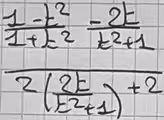 \frac{\frac{1-t^2}{1+t^2} \frac{-2t}{t^2+1}}{2\left(\frac{2t}{t^2+1}\right)+2}